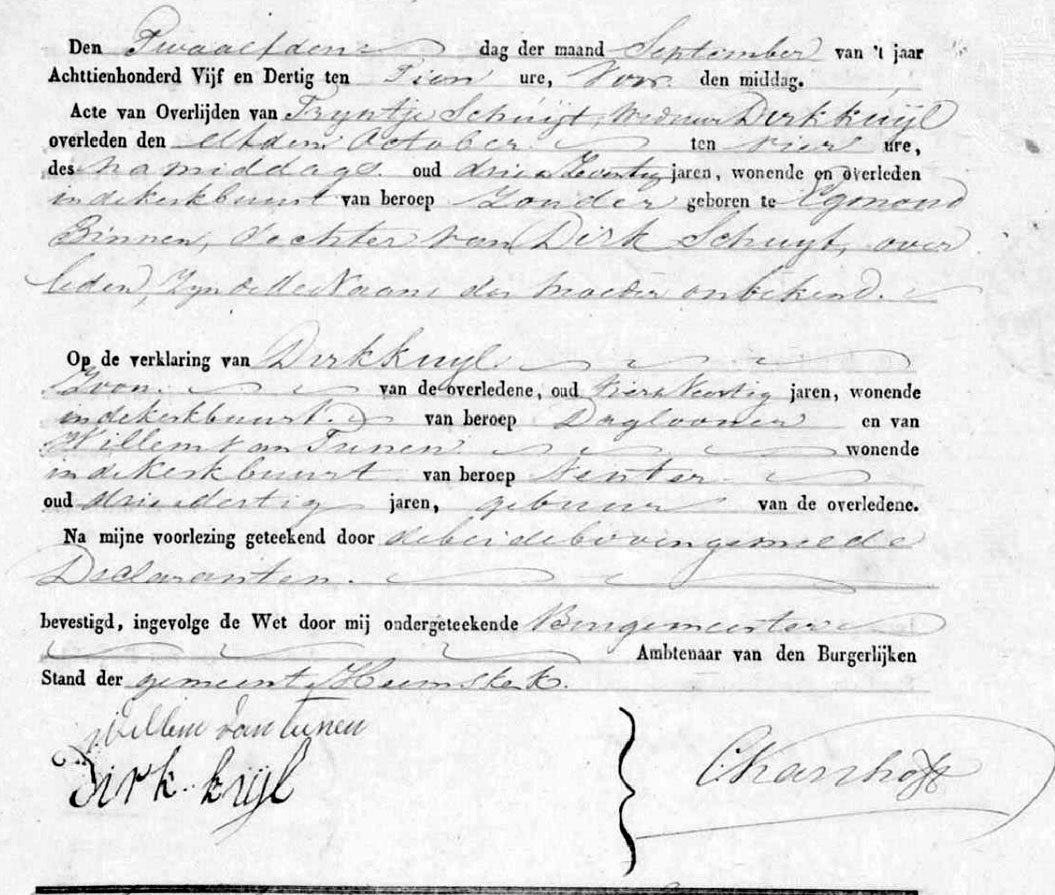 Den Twaalfden dag der maand September van 't jaar
Achttienhonderd Vijf en Dertig ten Tien ure, Voor den middag.
Acte van Overlijden van Tryntje Schuijt, weduw Dirk Kuijl
overleden den elfden October ten vier ure,
des namiddags oud drie en Zeventig jaren, wonende en overleden
in de kerkbuurt van beroep Zonder geboren te Egmond
Binnen, dochter van Dirk Schuyt, over
leden, Zynde de Naam der moeder onbekend.
Op de verklaring van Dirk Kuyl
Zoon van de overledene, oud vier en Veertig jaren, wonende
in de kerkbuurt van beroep Daglooner en van
Willem van Tunen wonende
in de kerkbuurt van beroep
oud drie en dertig jaren, gebuur van de overledene.
Na mijne voorlezing geteekend door de beide bovengemelde
Declaranten.
bevestigd, ingevolge de Wet door mij ondergeteekende Burgemeester
Ambtenaar van den Burgerlijken
Stand der gemeente Heemskerk.
willem van tunen
Dirk kuijl